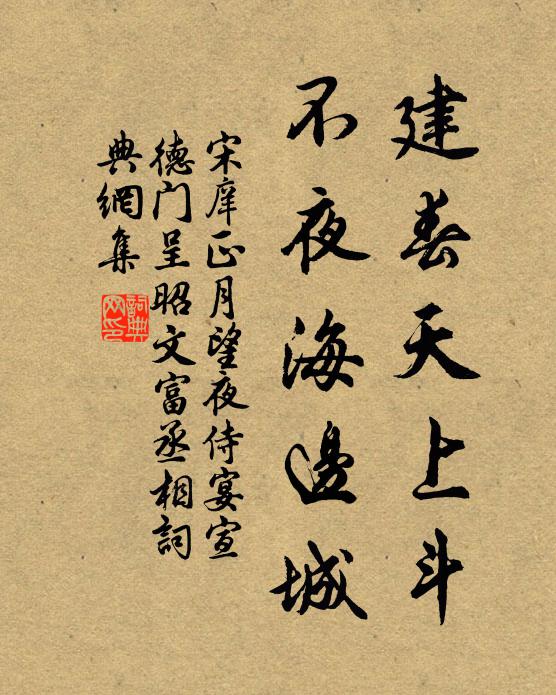 建春天上斗
不夜海邊城
宋庠正月望夜侍宴宣
德门呈昭文富丞相詞
典網集
詞典
网印